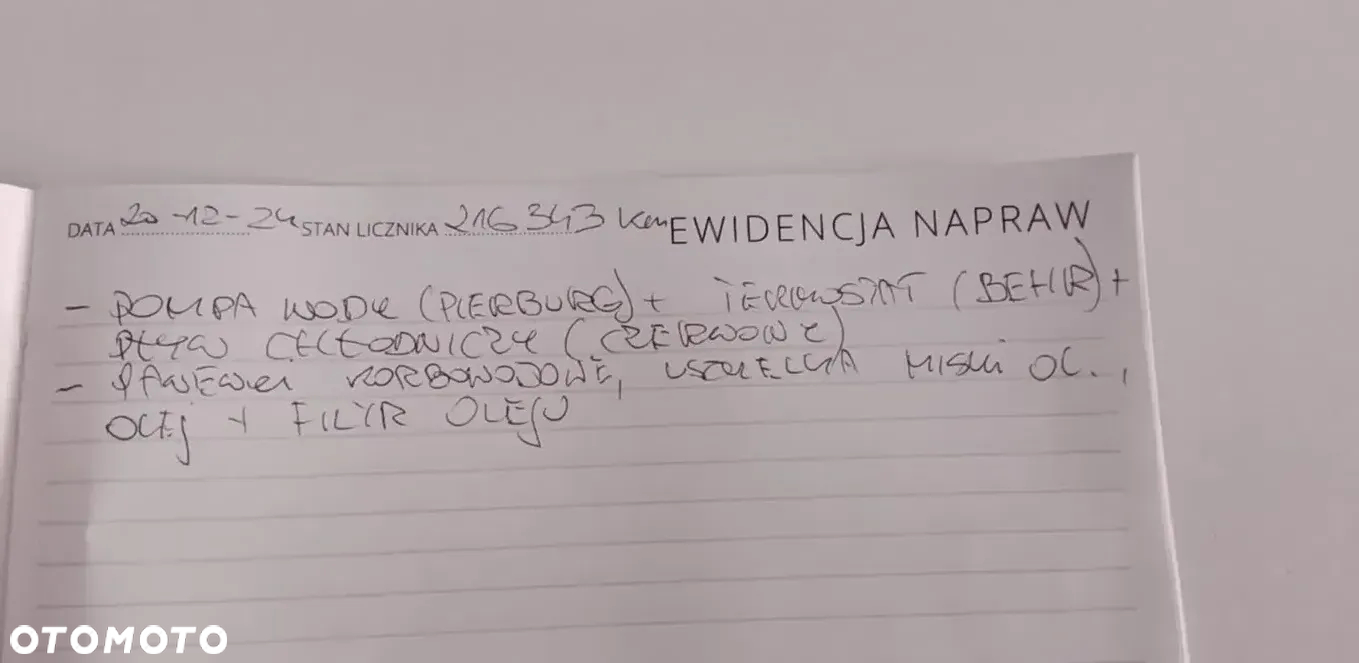 DATA 20-12-24 STAN LICZNIKA 216 343 km EWIDENCJA NAPRAW
- POMPA WODY (PIERBURG) + TERMOSTAT (BEHR) +
PŁYN CHŁODNICZY (CZERWONY)
- PANEWKI KORBOWODOWE, USZCZELKA MISKI OL.,
OLEJ + FILTR OLEJU
OTOMOTO